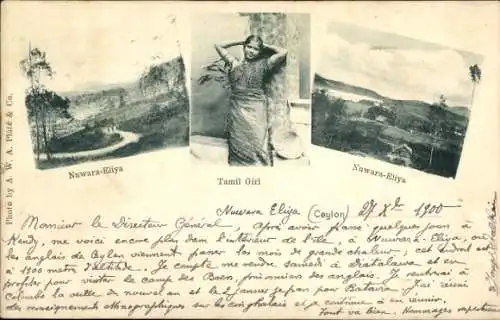 Photo by A. W. A. Plâté & Co.
Nuwara-Eliya
Tamil Girl
Nuwara-Eliya
Nuwara Eliya (Ceylon) 27 Xbre 1900
Monsieur le Directeur Général, Après avoir passé quelques jours à
Kandy, me voici encore plus dans l'intérieur de l'île, à Nuwara-Eliya, où
les anglais de Ceylan viennent passer les mois de grande chaleur, cet endroit est
à 1900 mètres d'altitude. Je compte me rendre samedi à Diatalawa et en
profiter pour visiter le camp des Boers, prisonniers des anglais. Je rentrerai à
Colombo la veille du nouvel an et le 2 janvier je pars pour Batavia. J'ai réuni
des renseignements ethnographiques sur les cinghalais et à continue à en réunir.
Tout va bien. Hommages respectueux